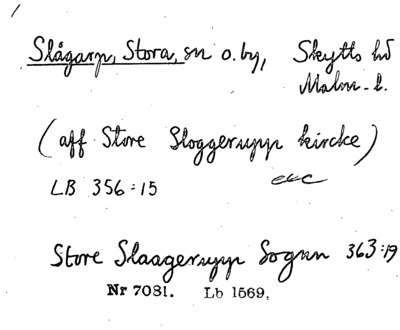 Slågarp, Stora, sn o. by, Skytts hd
Malm. l.
(aff Store Sloggerupp kircke)
LB 356:15
Store Slaagerupp Sognn 363:19
Nr 7081. Lb 1569.